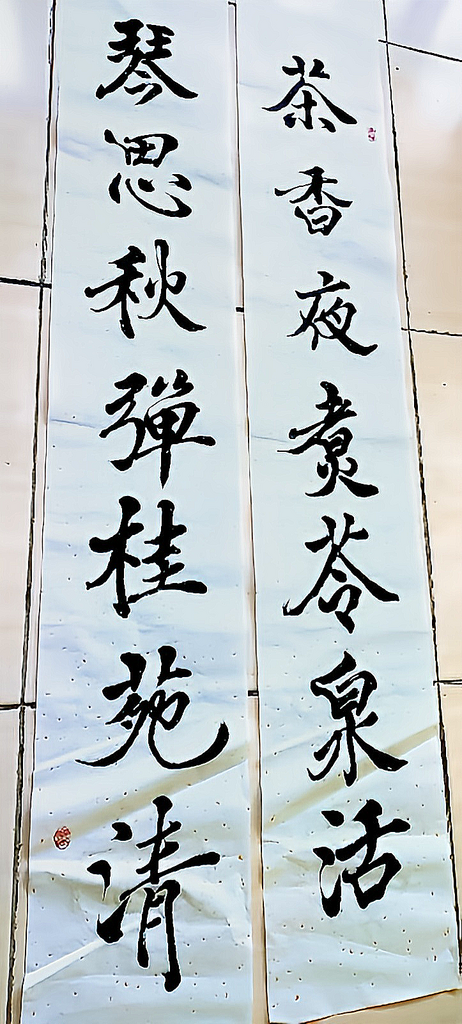 茶香夜煮苓泉活
琴思秋彈桂苑清